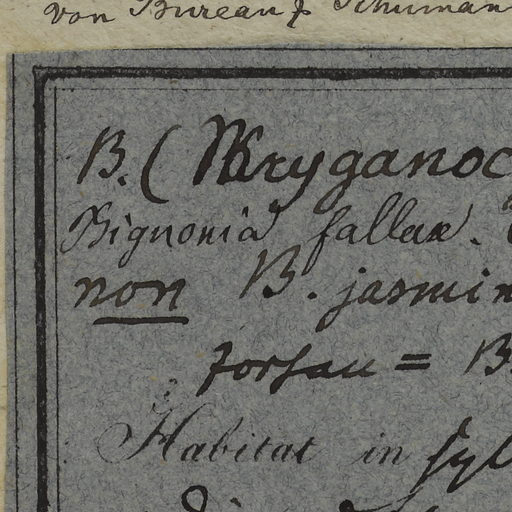 von Bureau & Schumann
B. (Kryganoc
Bignonia fallax.
non B. jasmin
forsan = B.
Habitat in syl